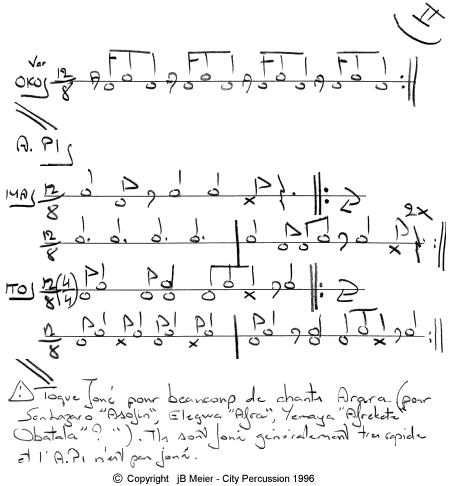 II
Var
OKO 12/8
A. PI
IYA 12/8
2x
12/8
ITO 12/8 (4/4)
12/8
⚠ Toque Joné pour beaucoup de chants Arara (pour
San Lazaro "Asojin", Elegwa "Afra", Yemaya "Afrekete"
Obatala "? "). Ils sont joné généralement très rapide
et l'A.PI n'est pas joné.
© Copyright jB Meier - City Percussion 1996